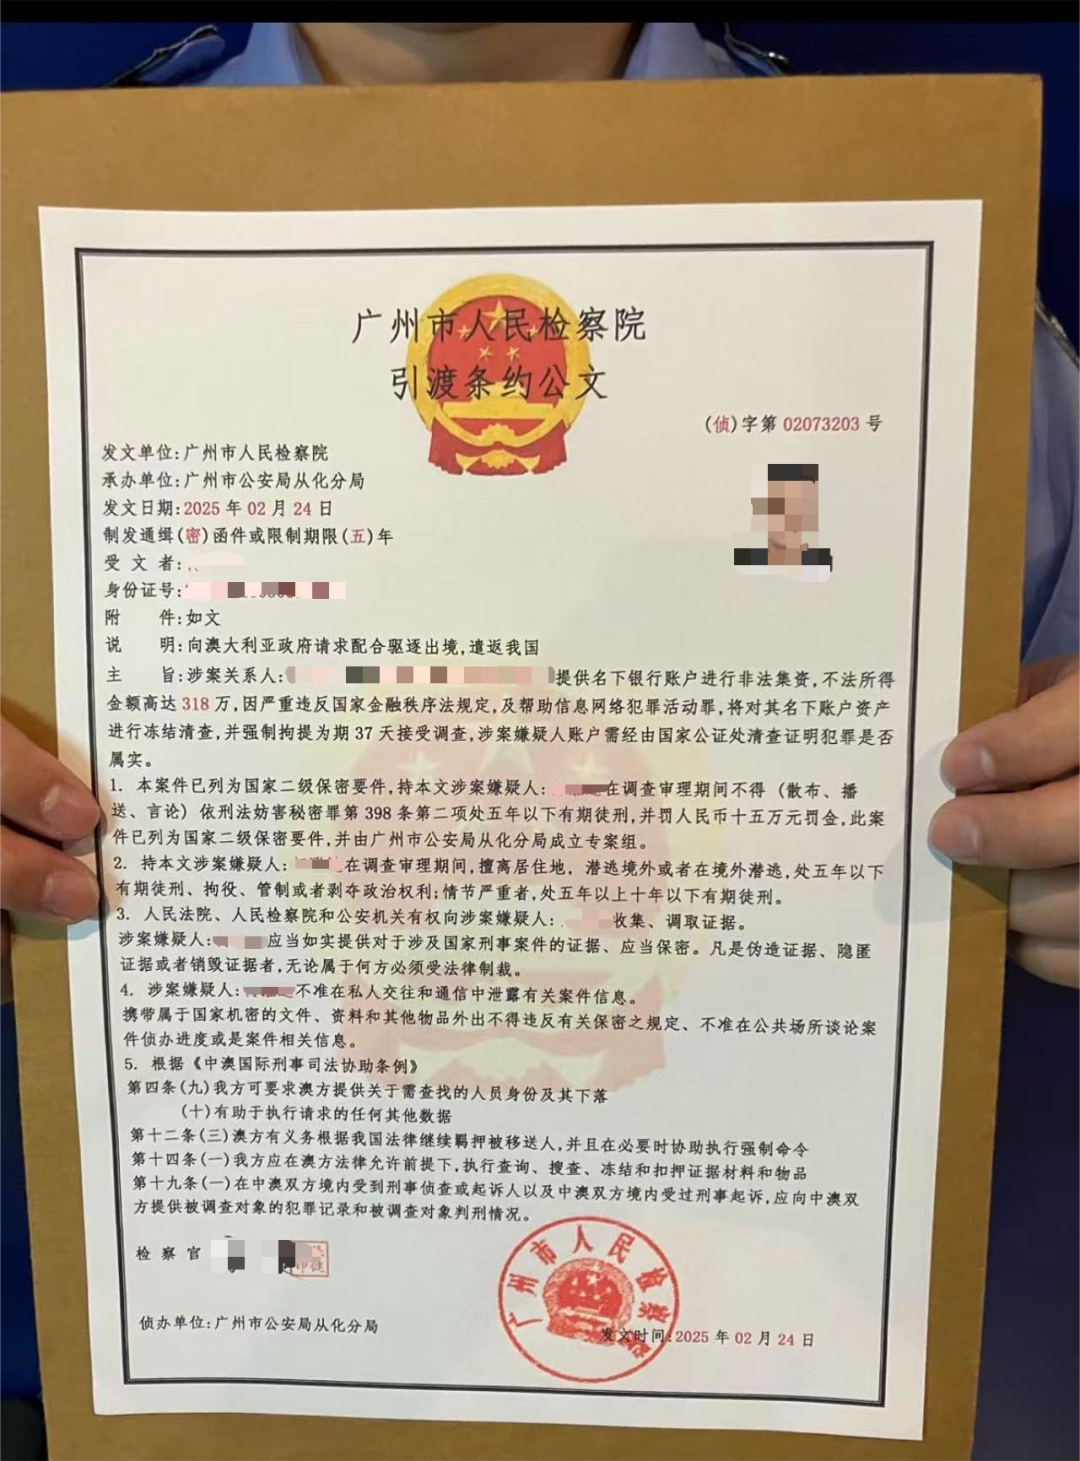 广州市人民检察院
引渡条约公文
(侦)字第 02073203 号
发文单位:广州市人民检察院
承办单位:广州市公安局从化分局
发文日期:2025 年 02 月 24 日
制发通缉(密)函件或限制期限(五)年
受 文 者:
身份证号:
附 件:如文
说 明:向澳大利亚政府请求配合驱逐出境,遣返我国
主 旨:涉案关系人: 提供名下银行账户进行非法集资,不法所得
金额高达 318 万,因严重违反国家金融秩序法规定,及帮助信息网络犯罪活动罪,将对其名下账户资产
进行冻结清查,并强制拘提为期 37 天接受调查,涉案嫌疑人账户需经由国家公证处清查证明犯罪是否
属实。
1. 本案件已列为国家二级保密要件,持本文涉案嫌疑人: 在调查审理期间不得 (散布、播
送、言论) 依刑法妨害秘密罪第 398 条第二项处五年以下有期徒刑,并罚人民币十五万元罚金,此案
件已列为国家二级保密要件,并由广州市公安局从化分局成立专案组。
2. 持本文涉案嫌疑人: 在调查审理期间,擅离居住地,潜逃境外或者在境外潜逃,处五年以下
有期徒刑、拘役、管制或者剥夺政治权利;情节严重者,处五年以上十年以下有期徒刑。
3. 人民法院、人民检察院和公安机关有权向涉案嫌疑人: 收集、调取证据。
涉案嫌疑人: 应当如实提供对于涉及国家刑事案件的证据、应当保密。凡是伪造证据、隐匿
证据或者销毁证据者,无论属于何方必须受法律制裁。
4. 涉案嫌疑人: 不准在私人交往和通信中泄露有关案件信息。
携带属于国家机密的文件、资料和其他物品外出不得违反有关保密之规定、不准在公共场所谈论案
件侦办进度或是案件相关信息。
5. 根据《中澳国际刑事司法协助条例》
第四条(九)我方可要求澳方提供关于需查找的人员身份及其下落
(十)有助于执行请求的任何其他数据
第十二条(三)澳方有义务根据我国法律继续羁押被移送人,并且在必要时协助执行强制命令
第十四条(一)我方应在澳方法律允许前提下,执行查询、搜查、冻结和扣押证据材料和物品
第十九条(一)在中澳双方境内受到刑事侦查或起诉人以及中澳双方境内受过刑事起诉,应向中澳双
方提供被调查对象的犯罪记录和被调查对象判刑情况。
检 察 官
广州市人民检察院
侦办单位:广州市公安局从化分局
发文时间:2025 年 02 月 24 日